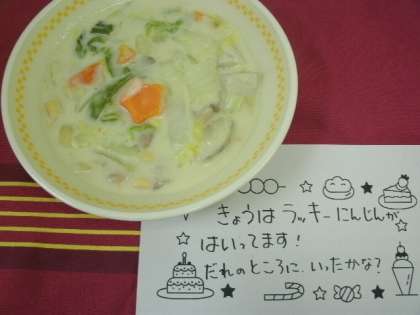 きょうは ラッキーにんじんが
はいってます!
だれのところに、いったかな?